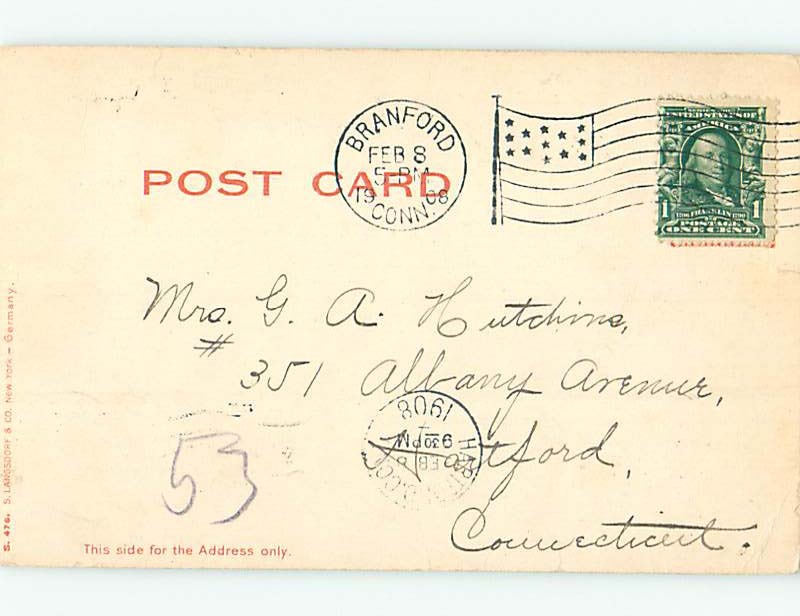 BRANFORD
FEB 8
5-PM
1908
CONN.
POST CARD
SERIES 1902
UNITED STATES OF
AMERICA
1 FRANKLIN 1
POSTAGE
ONE CENT
Mrs. G. A. Hutchins,
# 351 Albany Avenue,
Hartford,
Connecticut.
HARTFORD, CONN.
FEB 8
9 30 PM
1908
53
This side for the Address only.
S. 476. S. LANGSDORF & CO. New York - Germany.